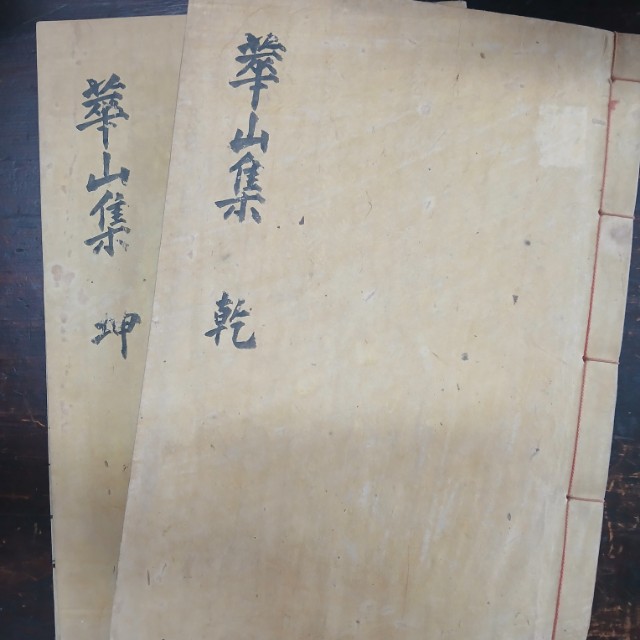 華山集 乾
華山集 坤